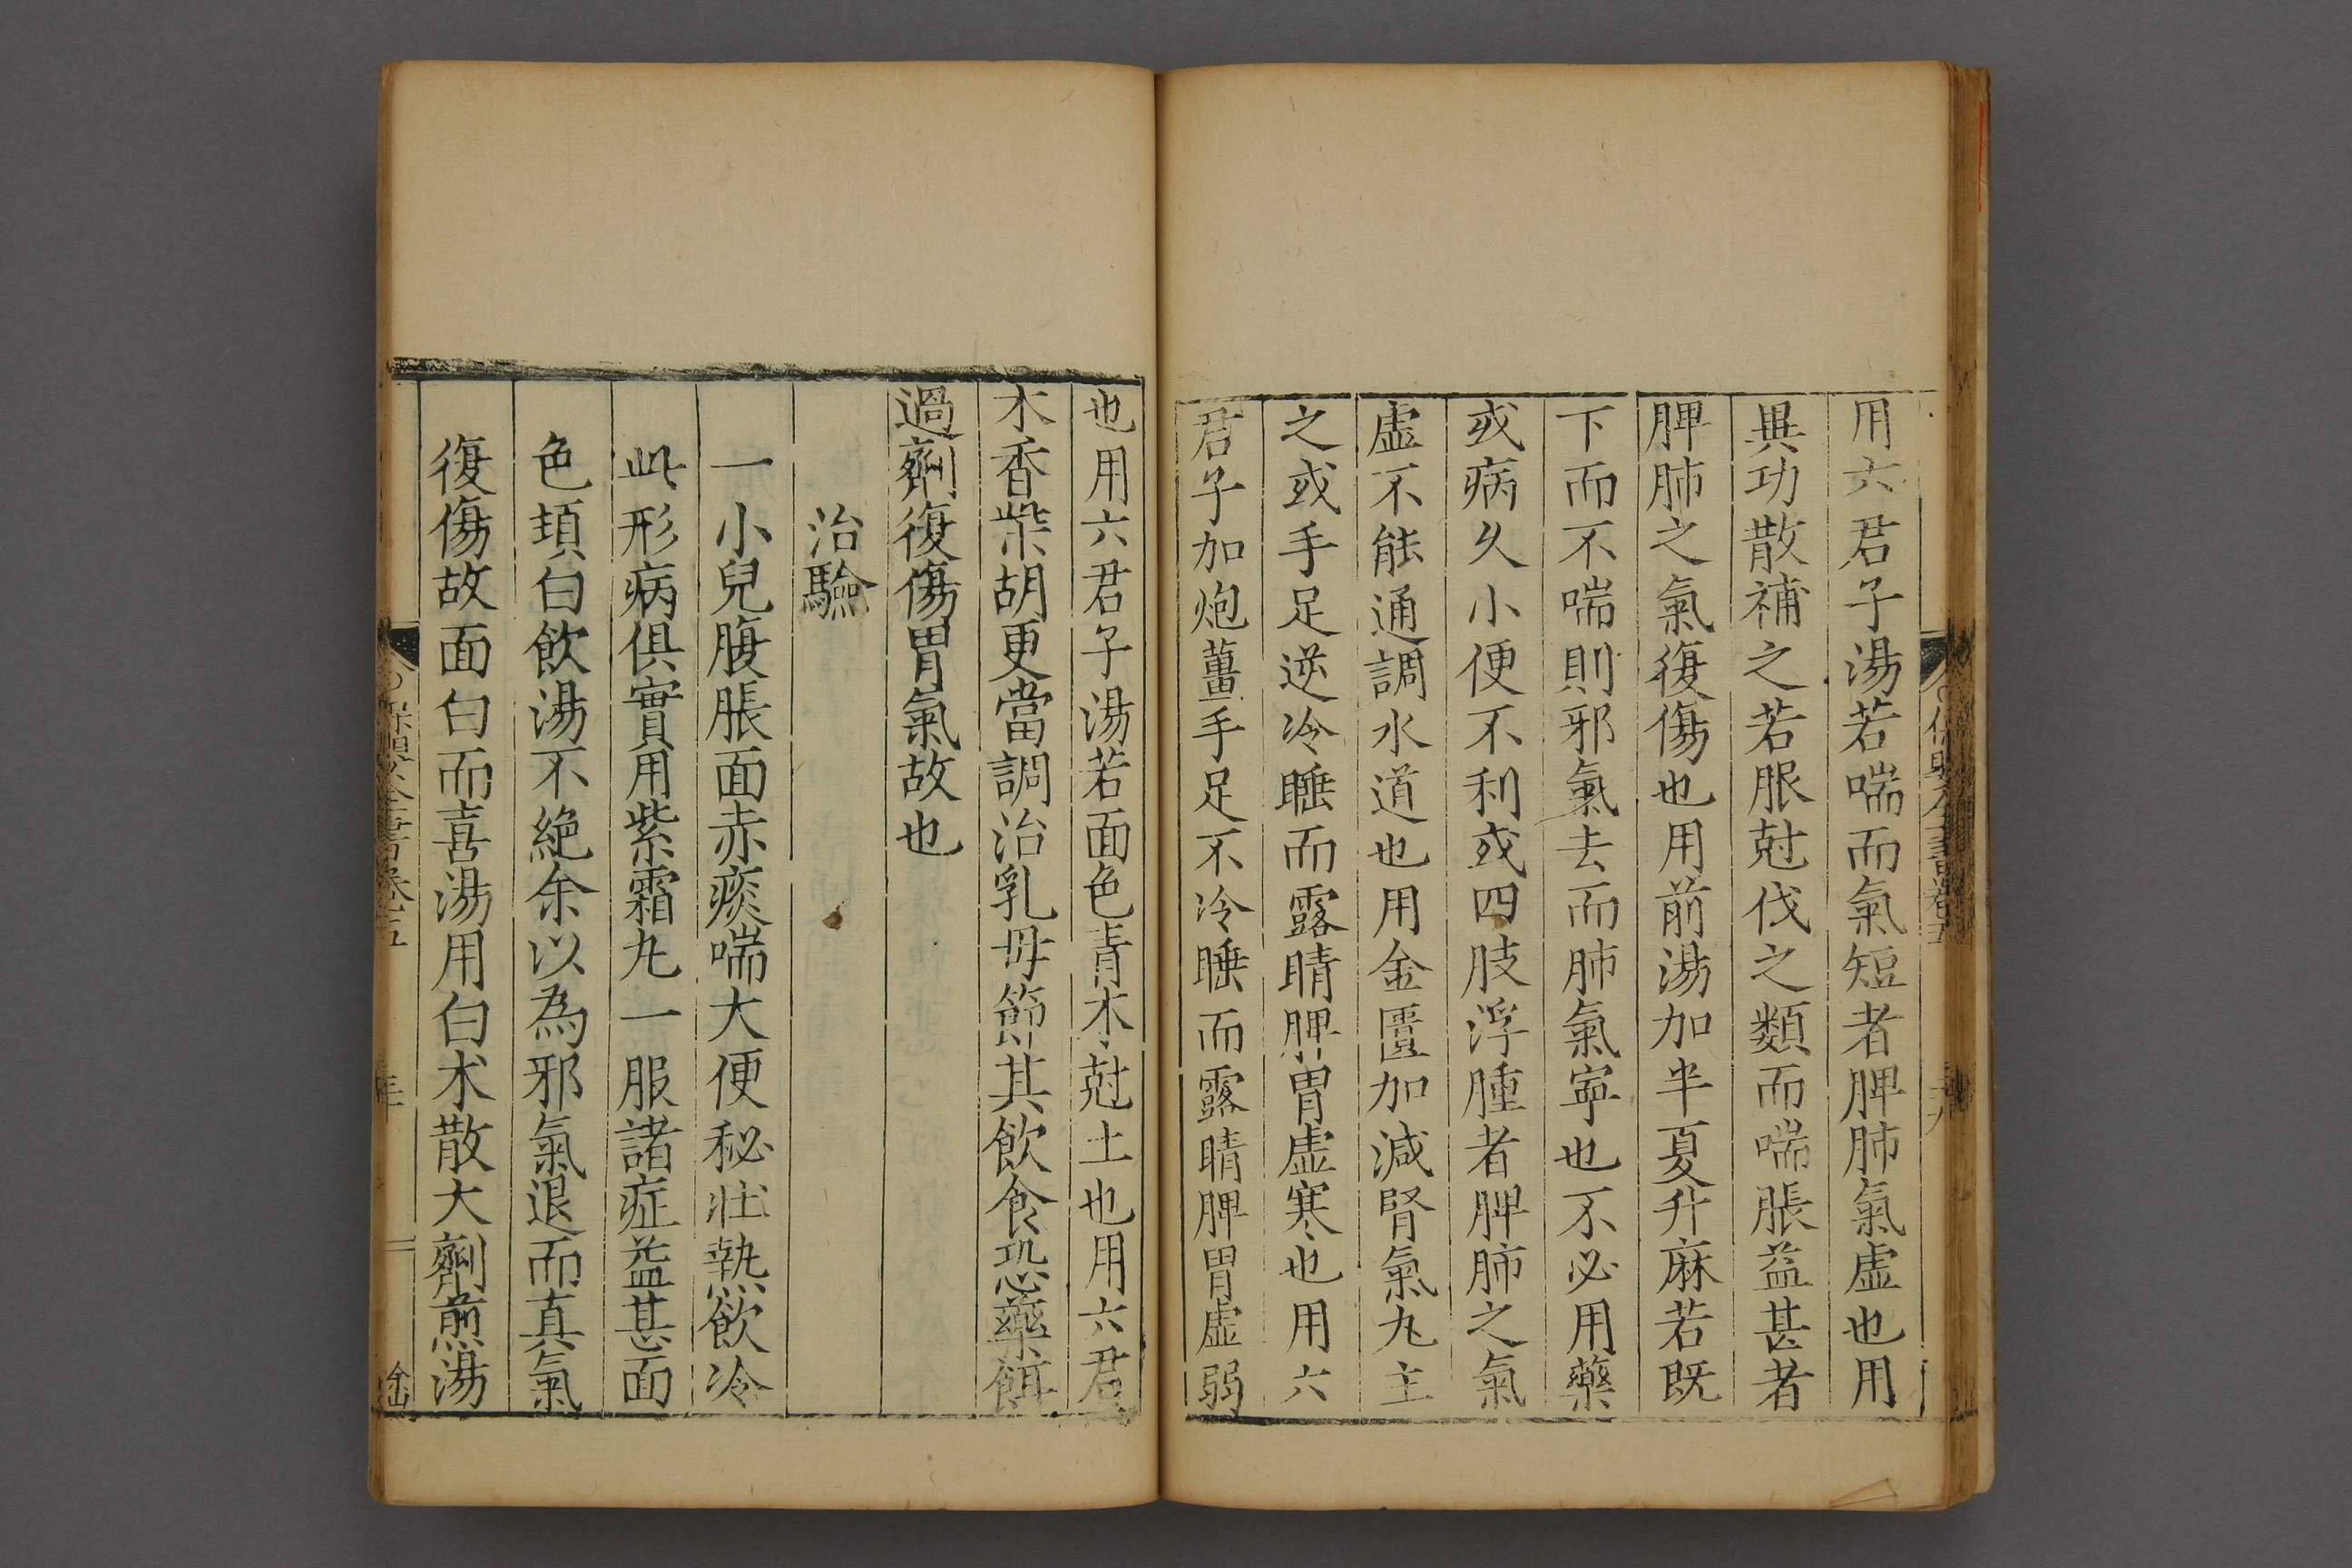 用六君子湯若喘而氣短者脾肺氣虛也用
異功散補之若服尅伐之類而喘脹益甚者
脾肺之氣復傷也用前湯加半夏升麻若既
下而不喘則邪氣去而肺氣寧也不必用藥
或病久小便不利或四肢浮腫者脾肺之氣
虛不能通調水道也用金匱加減腎氣丸主
之或手足逆冷睡而露睛脾胃虛寒也用六
君子加炮薑手足不冷睡而露睛脾胃虛弱
也用六君子湯若面色青木尅土也用六君
木香柴胡更當調治乳母節其飲食恐藥餌
過劑復傷胃氣故也
治驗
一小兒腹脹面赤痰喘大便秘壯熱飲冷
此形病俱實用紫霜丸一服諸症益甚面
色頓白飲湯不絕余以為邪氣退而真氣
復傷故面白而喜湯用白朮散大劑煎湯
保嬰全書卷五